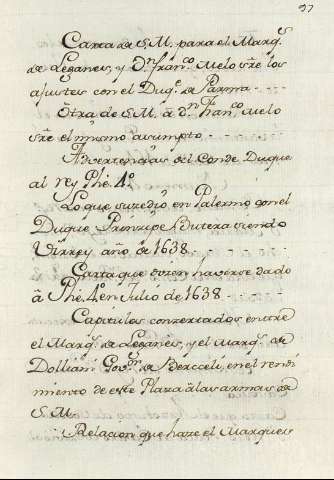 37
Carta de S.M. para el Marq.s
de Leganes, y D.n Fran.co Melo sre los
ajustes con el Duq.e de Parma
Otra de S.M. â d.n Fran.co Melo
sre el mismo asumpto
Advertencias del Conde Duque
al rey Phe. 4.º
Lo que suzedio en Palermo con el
Duque Prinzipe Butera siendo
Virrey año de 1638
Carta que dizen haverse dado
â Phe. 4.º en Julio de 1638
Capitulos conzertados entre
el Marq.s de Leganes, y el Marq.s de
Dolliani Gov.or de Berceli, en el rendi
miento de este Plaza â las armas de
S.M.
Relacion que haze el Marques